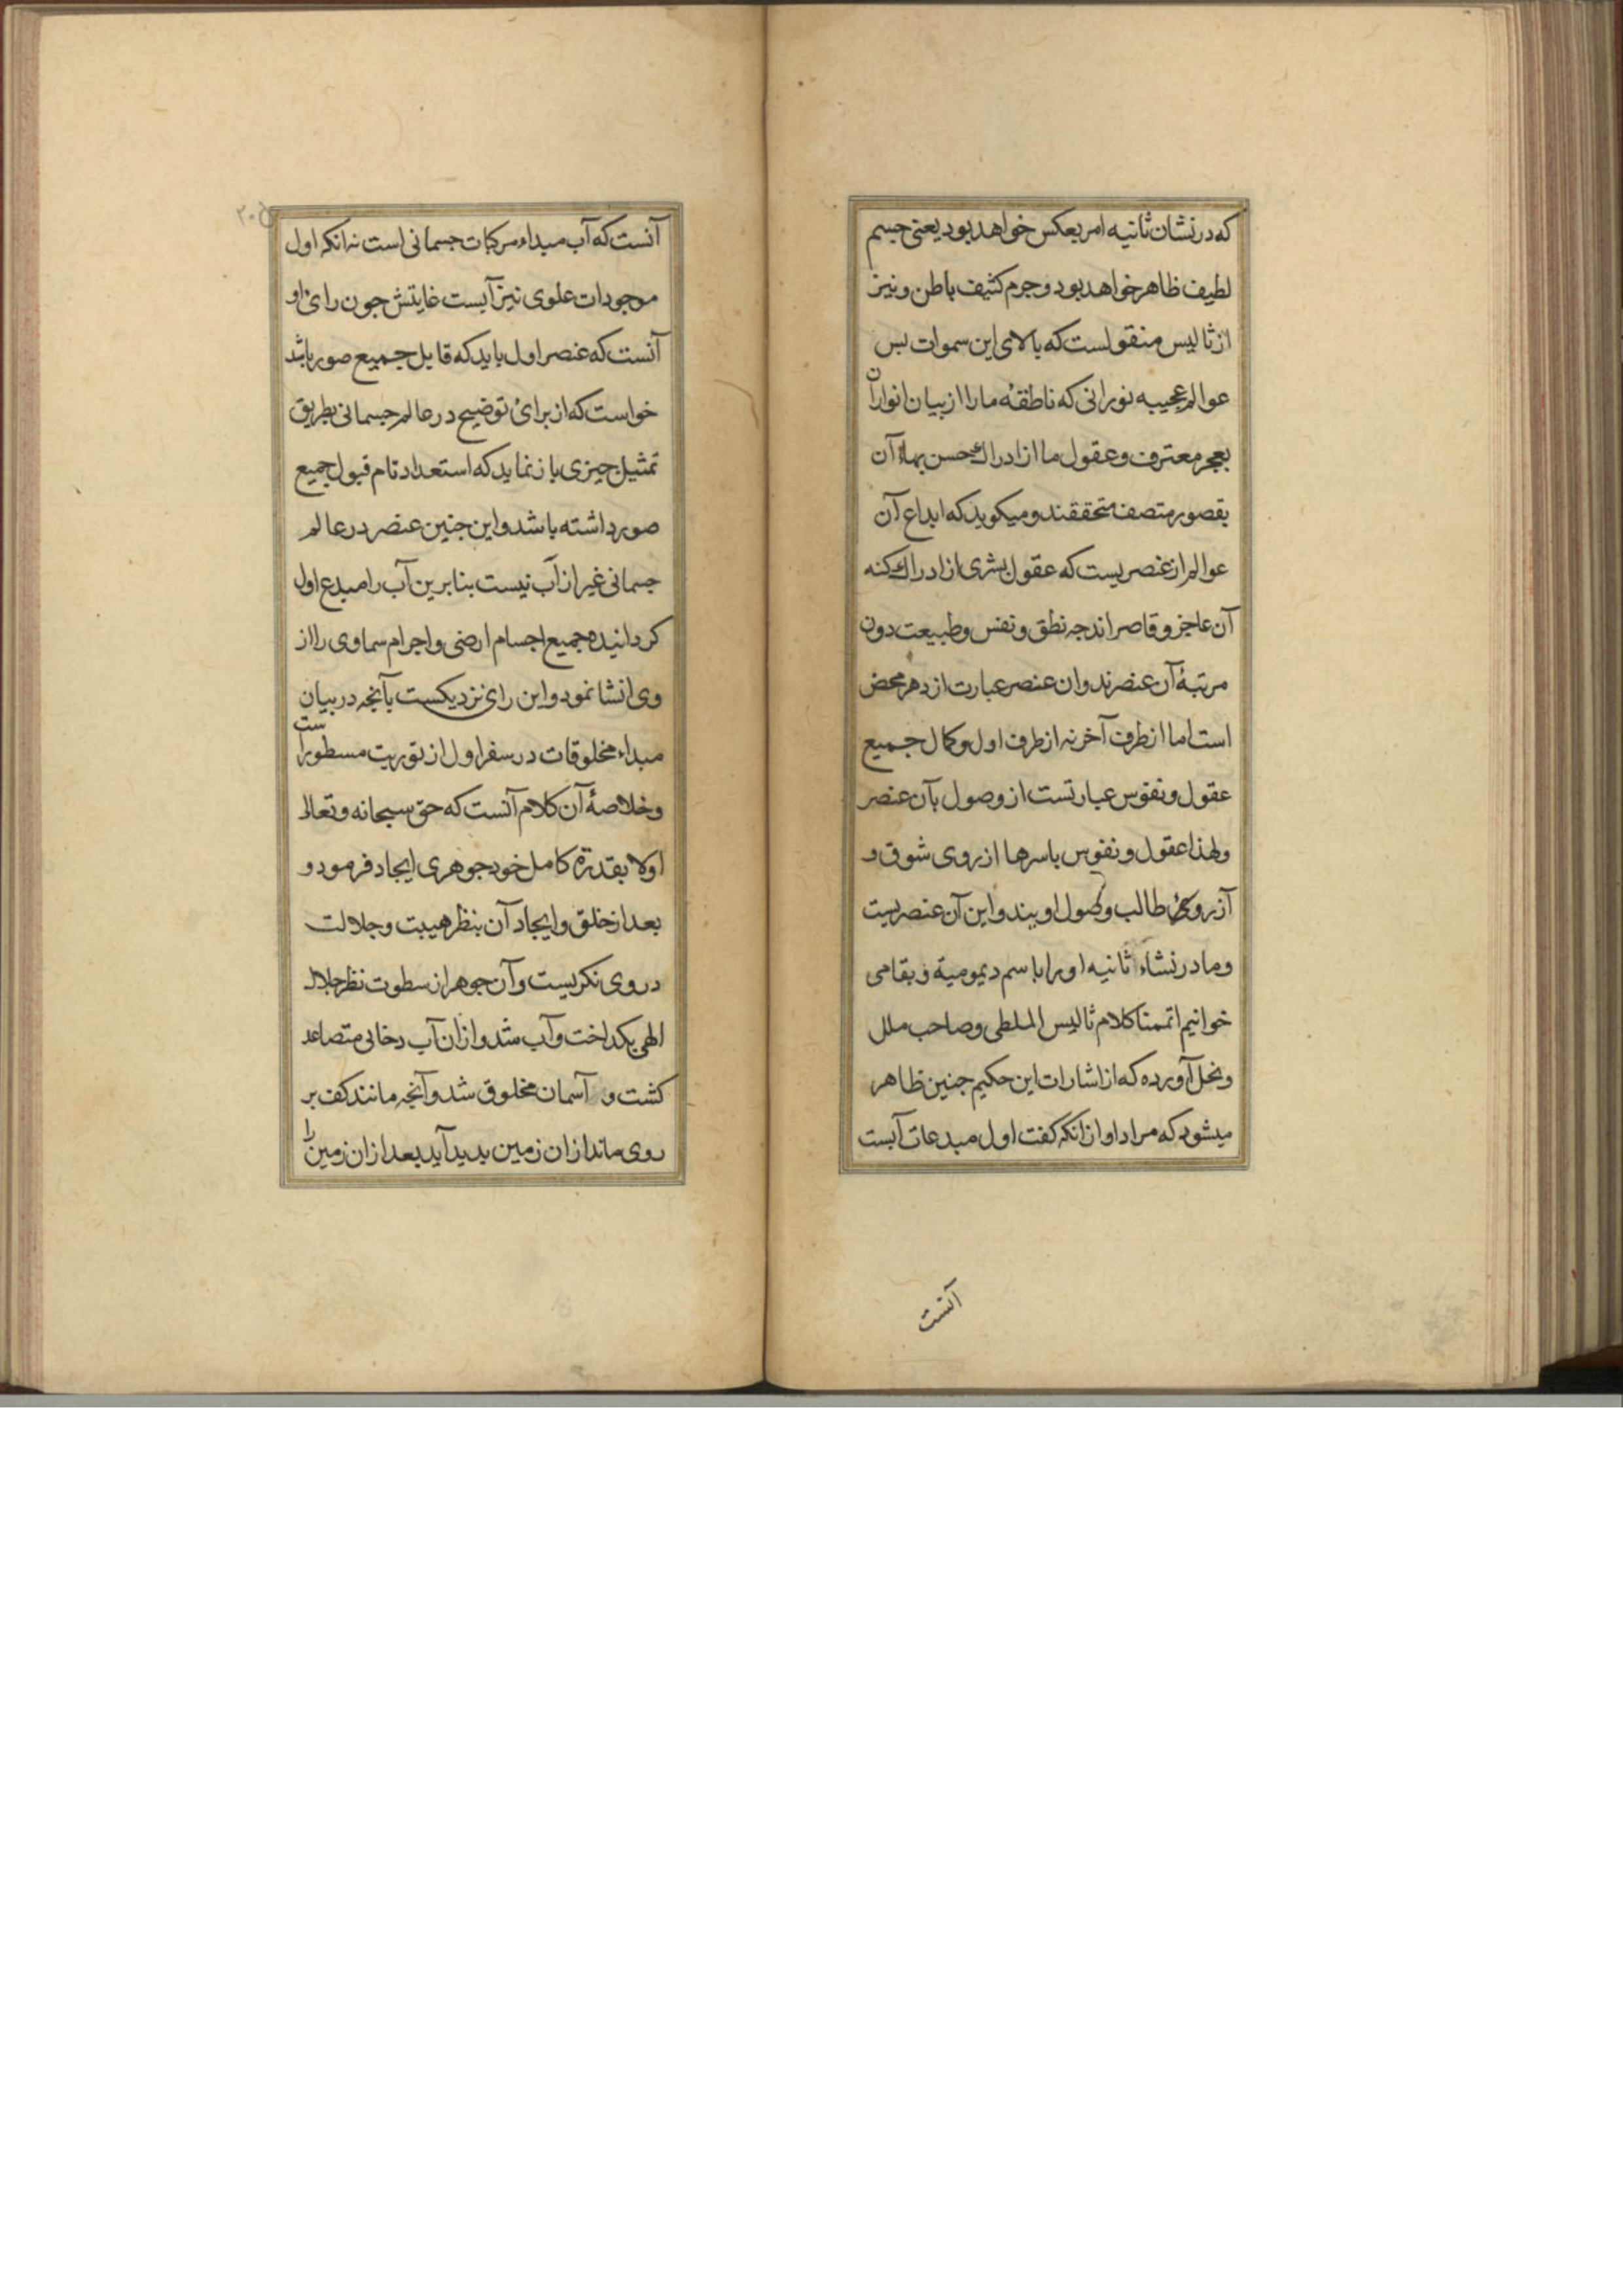 که در نشان ثانیه امر بعکس خواهد بود یعنی جسم
لطیف ظاهر خواهد بود و جرم کثیف باطن و نیز
از ثالیس منقولست که بالای این سموات بس
عوالم عجیبه نورانی که ناطقهٔ ما را از بیان انوار آن
بعجز معترف و عقول ما از ادراک حسن بهاء آن
بقصور متصف متحققند و میکوید که ابداع آن
عوالم از عنصریست که عقول بشری از ادراک کنه
آن عاجز و قاصراند جه نطق و نفس و طبیعت دون
مرتبهٔ آن عنصرند و ان عنصر عبارت از دهر محض
است اما از طرف آخر نه از طرف اول و کمال جمیع
عقول و نفوس عبارتست از وصول بآن عنصر
و لهذا عقول و نفوس باسرها از روی شوق و
آرزوی طالب وصول اویند و این آن عنصریست
و ما در نشاء ثانیه او را باسم دیمومیة و بقا می
خوانیم اتممنا کلام ثالیس الملطی و صاحب ملل
و نحل آورده که از اشارات این حکیم جنین ظاهر
میشود که مراد او از انکه کفت اول مبدعات آبست
آنست
۲۰۵
آنست که آب مبداء مرکبات جسمانی است نه انکه اول
موجودات علوی نیز آبست غایتش جون رای او
آنست که عنصر اول باید که قابل جمیع صور باشد
خواست که از برای توضیح در عالم جسمانی بطریق
تمثیل جیزی باز نماید که استعداد تام قبول جمیع
صور داشته باشد و این جنین عنصر در عالم
جسمانی غیر از آب نیست بنابرین آب را مبدع اول
کردانیده جمیع اجسام ارضی و اجرام سماوی را از
وی انشا نمود و این رای نزدیکست بآنجه در بیان
مبداء مخلوقات در سفر اول از توریت مسطور است
و خلاصهٔ آن کلام آنست که حق سبحانه و تعالی
اولا بقدرة کامل خود جوهری ایجاد فرمود و
بعد از خلق و ایجاد آن بنظر هیبت و جلالت
در وی نکریست و آن جوهر از سطوت نظر جلال
الهی بکداخت و آب شد و از ان آب دخانی متصاعد
کشت و آسمان مخلوق شد و آنجه مانند کف بر
روی ماند از ان زمین بدید آید بعد از ان زمین را